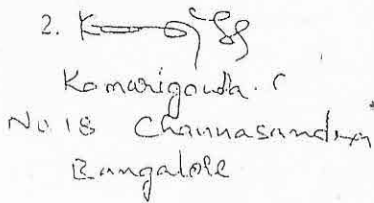 2.
Komarigowda. C
No. 18 Channasandra
Bangalore